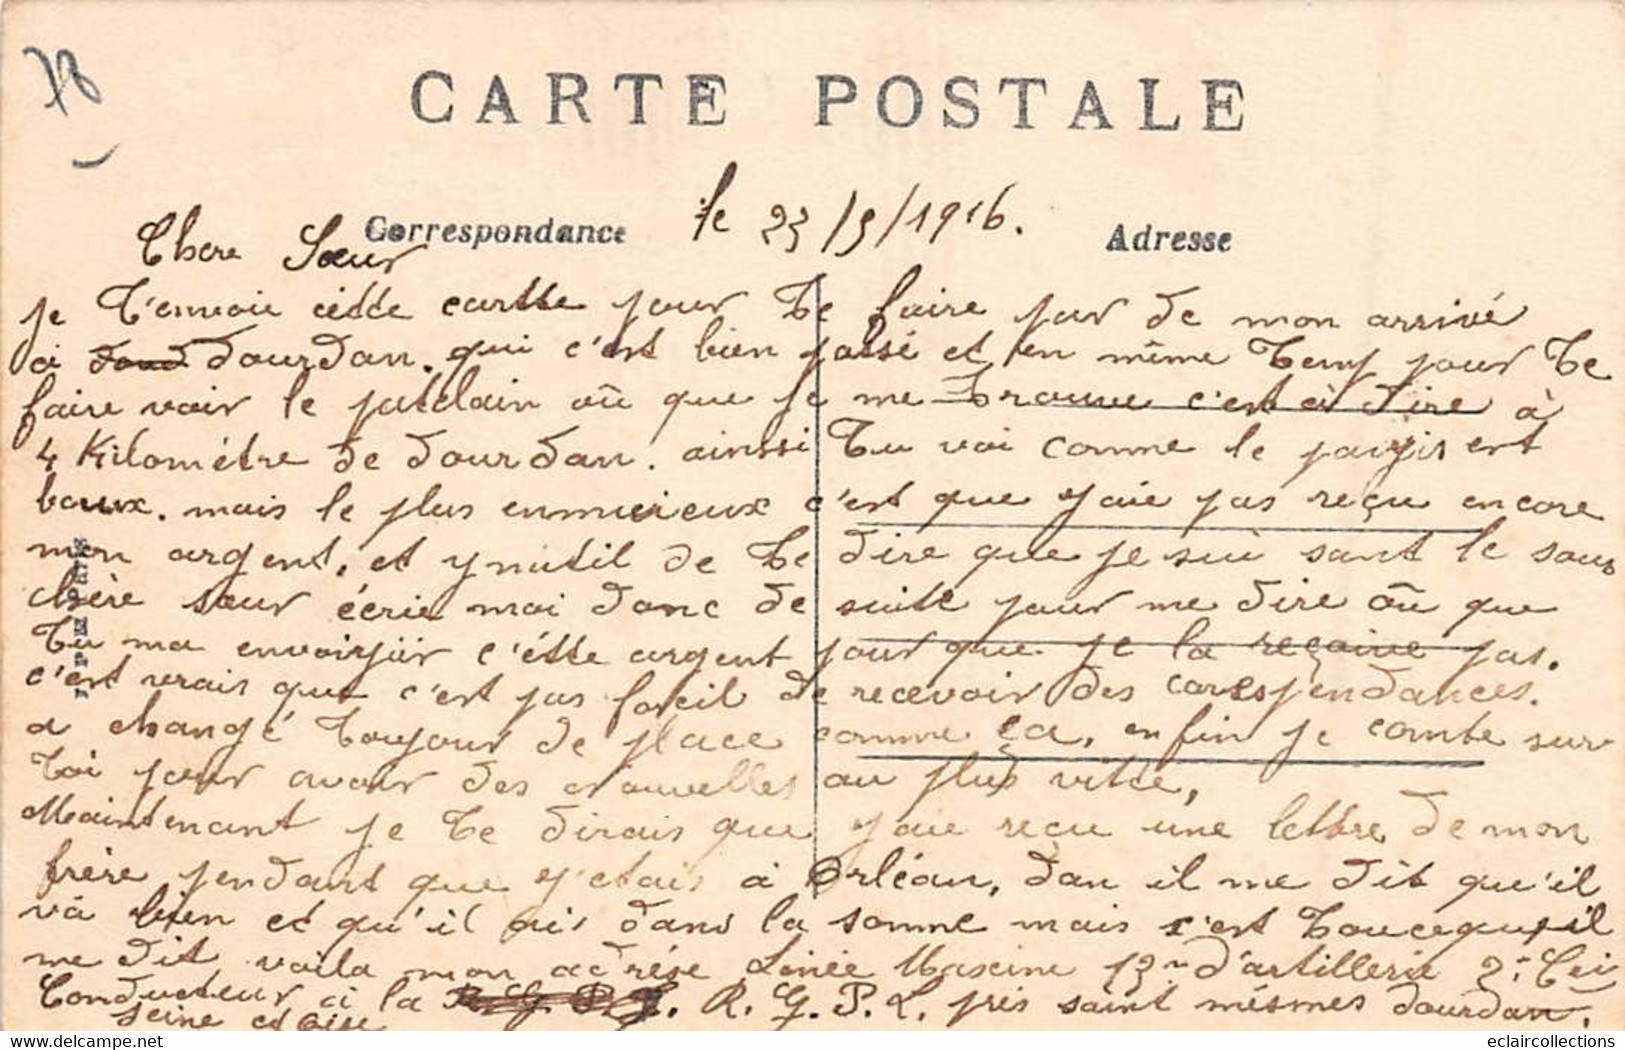 78
CARTE POSTALE
Correspondance
Adresse
le 23/9/1916.
Chere Sœur
je t'envoie citte cartte pour te faire par de mon arrivé
à dourdan. qui c'est bien passé et en même temp pour te
faire voir le patelain où que je me trouve c'est à dire à
4 Kilométre de dourdan. ainssi tu voi comme le payis ert
baux. mais le plus ennuieux c'est que j'aie pas reçu encore
mon argent, et ynutil de te dire que je sui sant le sous
chère sœur écrie moi donc de suite pour me dire où que
tu ma c'ètte argent pour que je la reçoive pas.
c'est vrais que c'est pas facil de recevoir des corespendances.
a changé toujour de place comme ça, enfin je comte sur
toi pour avoir des nouvelles au plus vitte,
Maintenant je te dirais que j'aie reçu une lettre de mon
frère pendant que j'etais à Orléan, dan il me dit qu'il
và bien et qu'il ait dans la somme mais c'est toucequ'il
me dit voila mon adrése Linée Maxime 13 d'artillerie 2
Conducteur à la R. G. P. L. prés saint mésmes dourdan.
seine et Oise
eclaircollections